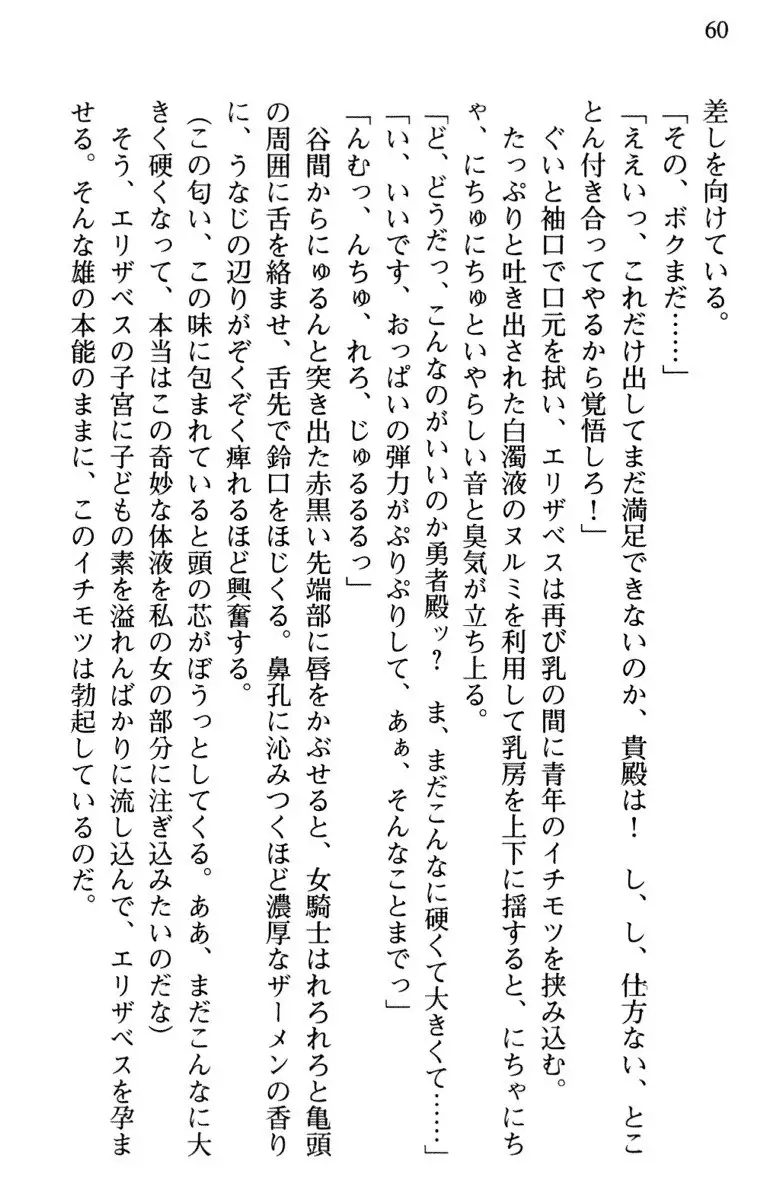 60
差しを向けている。
「その、ボクまだ……」
「ええいっ、これだけ出してまだ満足できないのか、貴殿は！　し、し、仕方ない、とこ
とん付き合ってやるから覚悟しろ！」
ぐいと袖口で口元を拭い、エリザベスは再び乳の間に青年のイチモツを挟み込む。
たっぷりと吐き出された白濁液のヌルミを利用して乳房を上下に揺すると、にちゃにち
ゃ、にちゅにちゅといやらしい音と臭気が立ち上る。
「ど、どうだっ、こんなのがいいのか勇者殿ッ？　ま、まだこんなに硬くて大きくて……」
「い、いいです、おっぱいの弾力がぷりぷりして、あぁ、そんなことまでっ」
「んむっ、んちゅ、れろ、じゅるるるっ」
谷間からにゅるんと突き出た赤黒い先端部に唇をかぶせると、女騎士はれろれろと亀頭
の周囲に舌を絡ませ、舌先で鈴口をほじくる。鼻孔に沁みつくほど濃厚なザーメンの香り
に、うなじの辺りがぞくぞく痺れるほど興奮する。
（この匂い、この味に包まれていると頭の芯がぼうっとしてくる。ああ、まだこんなに大
きく硬くなって、本当はこの奇妙な体液を私の女の部分に注ぎ込みたいのだな）
そう、エリザベスの子宮に子どもの素を溢れんばかりに流し込んで、エリザベスを孕ま
せる。そんな雄の本能のままに、このイチモツは勃起しているのだ。